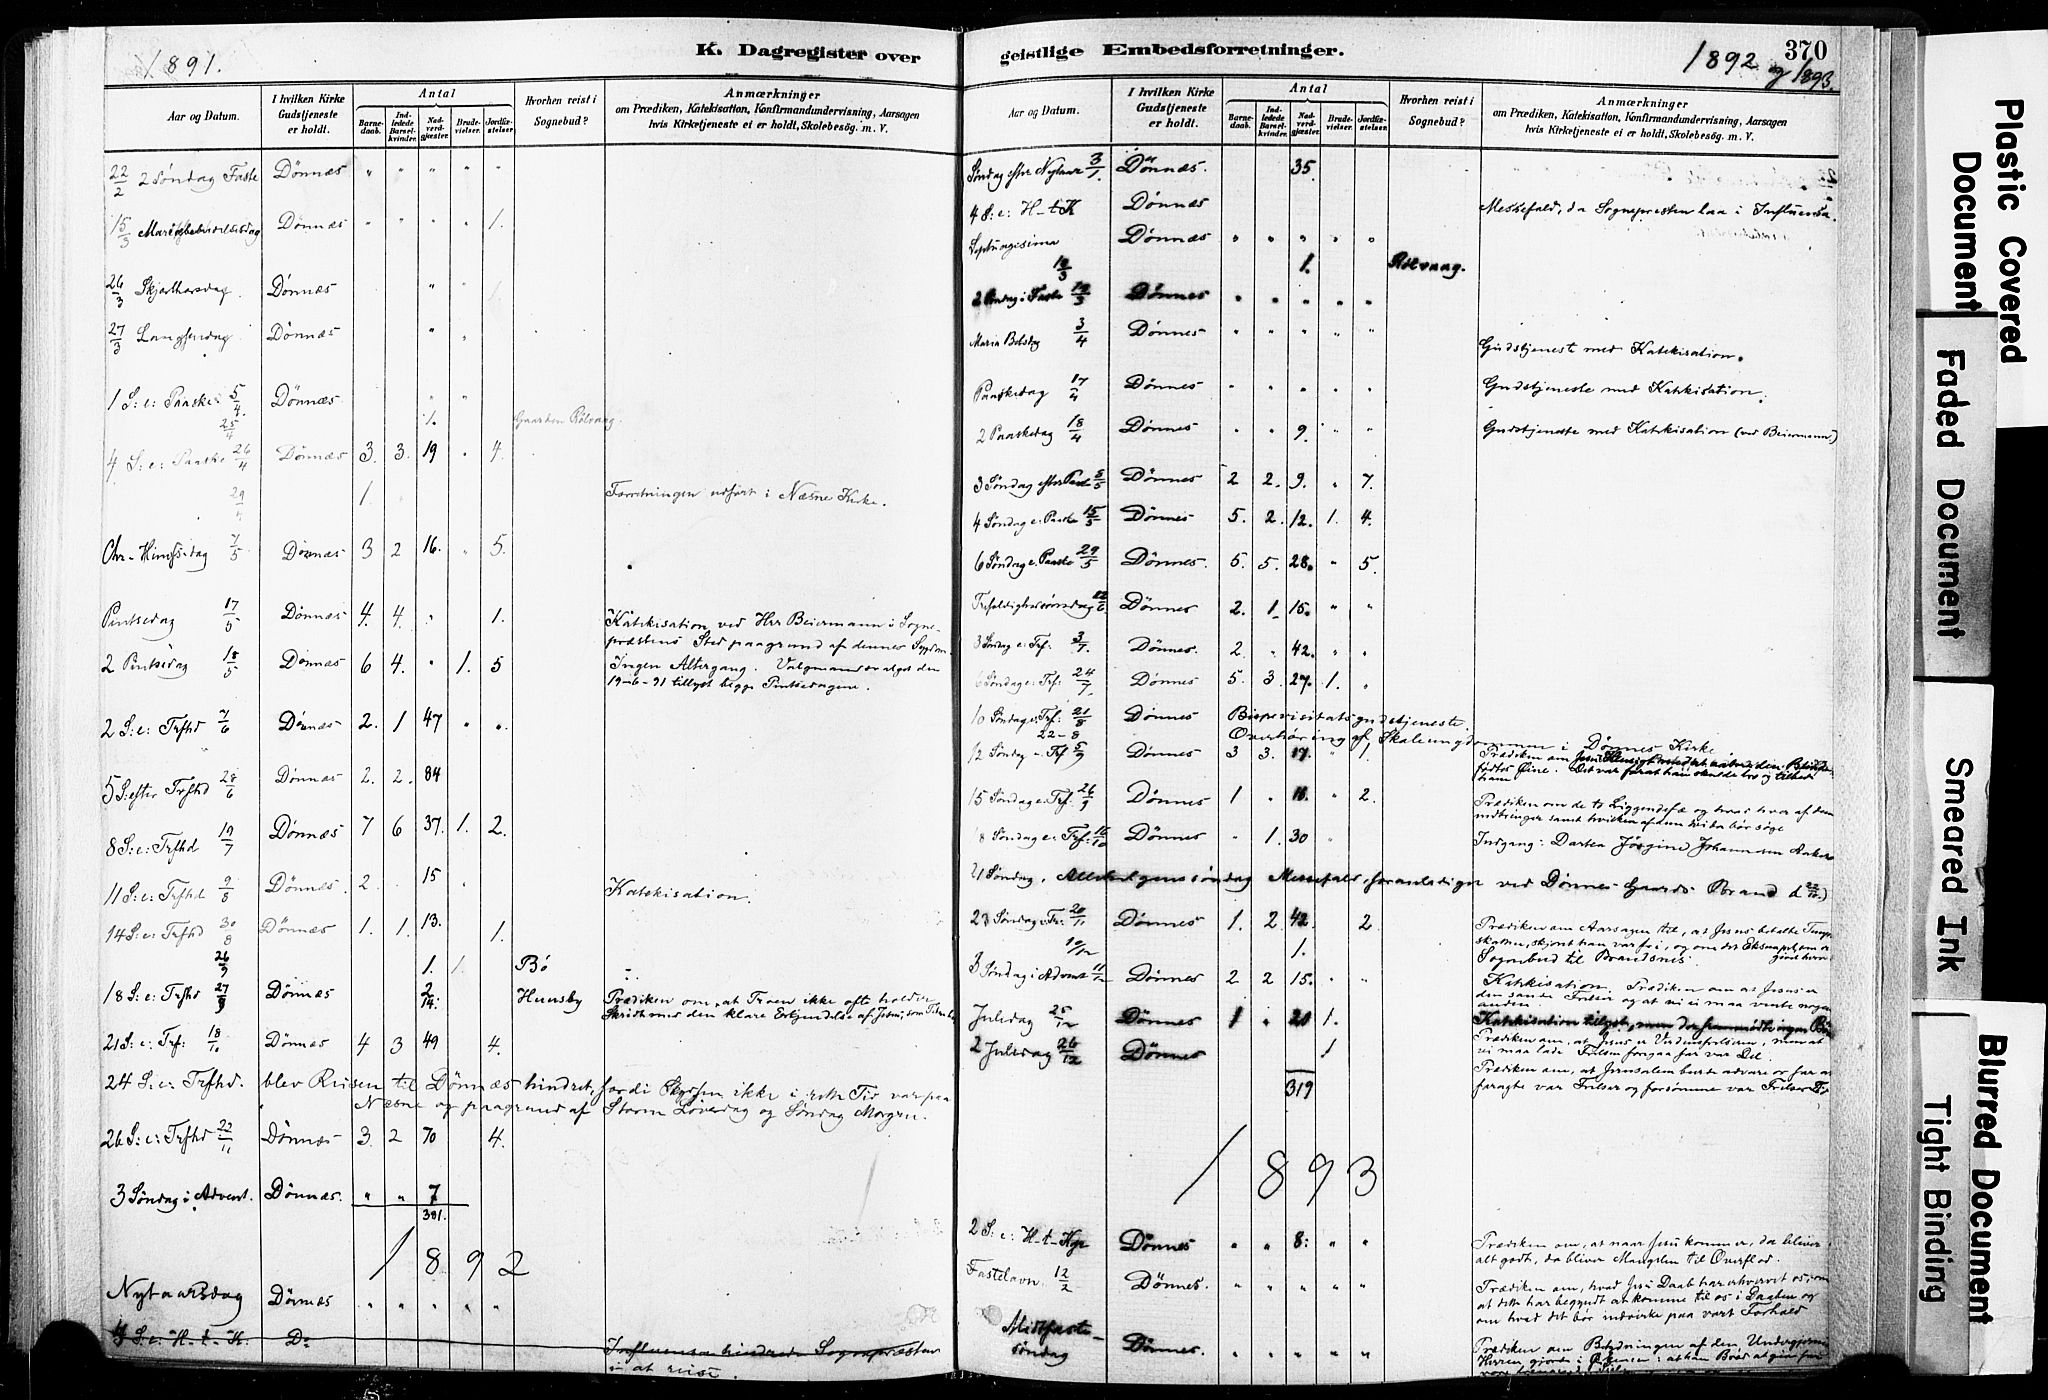 1891.
K. Dagregister over
Aar og Datum.
I hvilken Kirke Gudstjeneste er holdt.
Antal
Barnedaab.
Indledede Barselkvinder.
Nadverdgjæster.
Brudevielser.
Jordfæstelser.
Hvorhen reist i Sognebud?
Anmærkninger
om Prædiken, Katekisation, Konfirmandundervisning, Aarsagen
hvis Kirketjeneste ei er holdt, Skolebesög. m. V.
22/2 2 Söndag Faste Dönnæs " " " " "
15/3 Dönnæs " " " " 1.
26/3 Skjærthorsdag. Dönnæs " "
27/3 Langfredag Dönnæs "
1 S: e: Paaske 5/4 Dönnæs " "
25/4 1. Gaarden Rölvaag.
4 S: e: Paaske 26/4 Dönnæs 3. 3. 19 " 4.
29/4 1. Forretningen udfört i Næsne Kirke.
Chr-Himfs-dag 7/5 Dönnæs 3 2 16. " 5.
Pintsedag 17/5 Dönnæs 4. 4. " 1. Katekisation ved Hrr Beiermann i Sogne-
præstens Sted paagrund af dennes Sygdom
2 Pintsedag 18/5 Dönnæs 6 4. " 1. 5 Ingen Altergang. Valgmandsvalget den
19-6-91 tillyst begge Pintsedagene.
2 S: e: Trfhd 7/6 Dönnæs 2. 1 47 " "
5 S: efter Trfhd 28/6 Dönnæs 2. 2. 84
8 S: e: Trfhd 19/7 Dönnæs 7 6 37. 1. 2.
11 S: e: Trfhd 9/8 Dönnæs. 2. 15 Katekisation.
14 S: e: Trfhd 30/8 Dönnæs 1. 1. 13. 1.
26/9 1. 1. Bö
18 S: e: Trfhd 27/9 Dönnæs 2 14. Huusby Prædiken om, at Troen ikke ofte holder
Skridt med den klare Erkjendelse af Jesu,
21 S: e: Trf: 18/10 Dönnæs 4 3 49 4.
24 S: e: Trfhd. blev Reisen til Dönnæs hindret, fordi Skydsen ikke i rette Tid var paa
Næsne og paagrund af Storm Löverdag og Söndag Morgen.
26 S: e: Trfhd 22/11 Dönnæs 3. 2 70 4.
3 Söndag i Advent. Dönnæs. " " 7
391.
1892
Nytaarsdag Dönnæs " " " " "
4 S: e: H-t-K: Do Influensa hindrede Sognepræsten
i at reise.
geistlige Embedsforretninger.
1892 og 1893.
370
Aar og Datum.
I hvilken Kirke Gudstjeneste er holdt.
Antal
Barnedaab.
Indledede Barselkvinder.
Nadverdgjæster.
Brudevielser.
Jordfæstelser.
Hvorhen reist i Sognebud?
Anmærkninger
om Prædiken, Katekisation, Konfirmandundervisning, Aarsagen
hvis Kirketjeneste ei er holdt, Skolebesög. m. V.
Söndag efter Nytaar 3/1 Dönnæs. 35.
4 S: e: H-t-K Dönnæs Messefald, da Sognepresten laa i Influensa.
Septuagesima Dönnæs " " " " "
1. Rölvaag.
2 Söndag i Faste Dönnes " " " " "
Maria Bebdag 3/4 Dönnes " " " " " Gudstjeneste med Katekisation.
Paaskedag 17/4 Dönnes " " " " " Gudstjeneste med Katekisation.
2 Paaskedag 18/4 Dönnes " " 9. " " Gudstjeneste med Katekisation (ved Beiermann)
3 Söndag efter Paaske Dönnes 2 2. 9. " 7.
4 Söndag e. Paaske 15/5 Dönnes 5. 2. 12. 1. 4.
6 Söndag e. Paaske 29/5 Dönnes. 5. 5. 28. " 5.
Trefoldighedssöndag 12/6 Dönnes 2. 1. 15. " "
3 Söndag e: Trf: 3/7 Dönnes. 2. " 42. " "
6 Söndag e: Trf: 24/7 Dönnes 5. 3. 27. 1. "
10 Söndag e: Trf: 21/8 Dönnes Bispevisitatsgudstjeneste
22-8 Overhöring af Skoleungdommen i Dönnes Kirke
12 Söndag e: Trf Dönnes 3 3. 17. " 1. Prædiken om
födtes Öine. Det var forat han skulde tro og tilbede
ham
15 Söndag e. Trf: 26/9 Dönnes 1 " " 2. Prædiken om de to Liggendefæ og hvad hver af dem
indbringer samt hvilken af dem vi bör söge
18 Söndag e. Trf: 16/10 Dönnes " 1. 30 " Indgang: Dortea Jörgine Johannsen
21 Söndag, Allehelgenssöndag Messefald, foranlediget ved Dönnes Gaards Brand
23 Söndag e: Tr: 20/11 Dönnes 1. 2 42. 2. Prædiken om Aarsagen til, at Jesus betalte Tempel-
skatten, skjönt han var fri, og om det Eksempel,
10/12 1. Sognebud til Brandsnes.
3 Söndag i Advent 11/12 Dönnes 2 2 15. " " Katekisation. Prædiken om at Jesus er
den sande Frelser og at vi ei maa vente nogen
anden.
Juledag 25/12 Dönnes 1 " 21 1. Katekisation tillyst, men der fremmödte ingen Börn
Prædiken om, at Jesus er Verdensfrelseren, men at
vi maa lade Frelsen foregaa for vor Del.
2 Juledag 26/12 Dönnes 1 Prædiken om, at Jerusalem burde advare os for at
foragte vor Frelser og forsömme vor Frelses Tid
319
1893
2 S: e: H-t-Kgr Dönnes " " 8: " " Prædiken om, at naar Jesu kommer, da bliver
alt godt, da bliver Mangelen til Overflod.
Fastelavn. 12/2 Dönnes. " " " " " Prædiken om, hvad Jesu Daab har erhvervet os, som
at dette har begyndt at komme til os i Daaben og
om hvad det bör indvirke paa vort Forhold
Midfaste-
söndag Dönnes. " " " " " Prædiken om Betydningen af den Undergjerning
Herren gjorde i Örkenen:
Plastic Covered Document
Faded Document
Smeared Ink
Blurred Document
Tight Binding